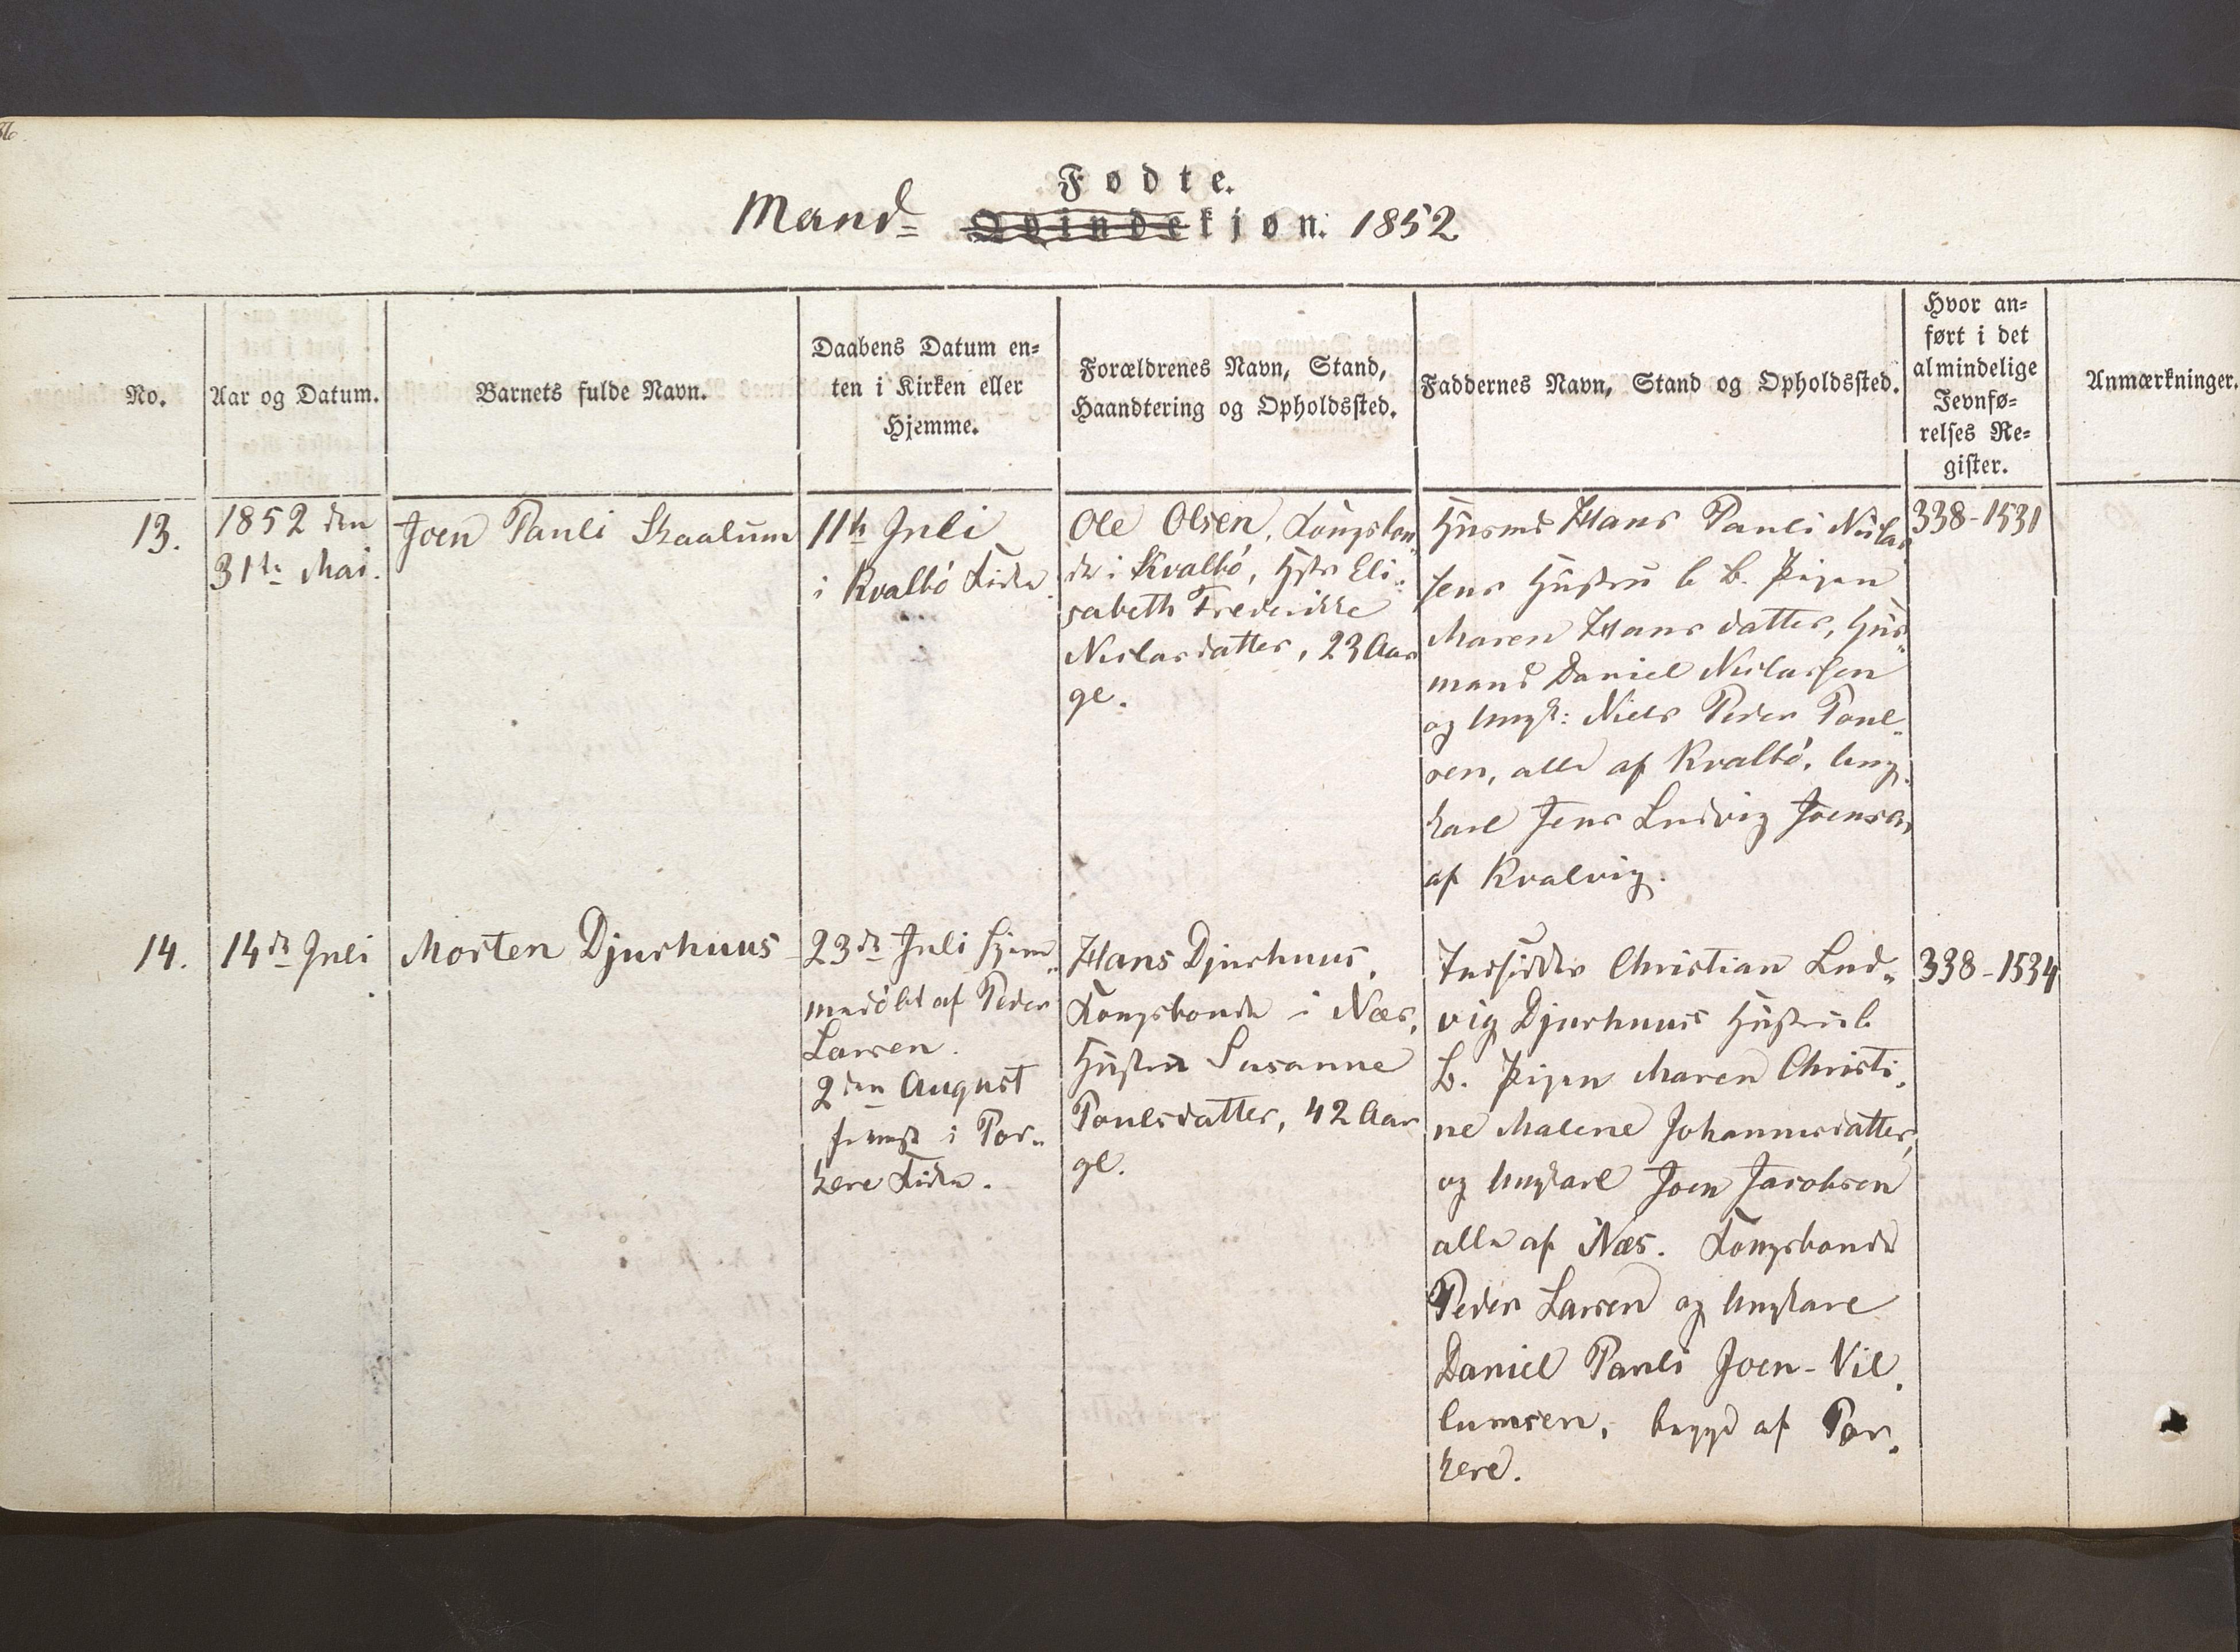 Fødte.
Mand= Qvindekjøn. 1852
No.
Aar og Datum.
Barnets fulde Navn.
Daabens Datum en=
ten i Kirken eller
Hjemme.
Forældrenes Navn, Stand,
Haandtering og Opholdssted.
Faddernes Navn, Stand og Opholdssted.
Hvor an=
ført i det
almindelige
Jevnfø=
relses Re=
gister.
Anmærkninger.
13.
1852 den
31te Mai.
Joen Pauli Skaalum
11te Juli
i Kvalbö Kirke.
Ole Olsen, Kongsbon=
de i Kvalbö, Hstr Eli=
sabeth Frederikke
Niclasdatter, 23 Aar
gl.
Husmd Hans Pauli Niclas
sens Hustru b B. Pigen
Maren Hansdatter, Hus=
mand Daniel Niclassen
og Ungk: Niels Peder Poul=
sen, alle af Kvalbö, Ung=
karl Jens Ludvig Joensen
af Kvalvig.
338-1531
14.
14de Juli
Morten Djurhuus
23de Juli hjem=
medöbt af Peder
Larsen.
2den August
fremst i Por=
kere Kirke.
Hans Djurhuus,
Kongsbonde i Næs,
Hustru Susanne
Poulsdatter, 42 Aar
gl.
Indsidder Christian Lud=
vig Djurhuus Hustru b
B. Pigen Maren Christi=
ne Malene Johannesdatter,
og Ungkarl Joen Jacobsen
alle af Næs. Kongsbonde
Peder Larsen og Ungkarl
Daniel Pauli Joen-Vil=
lumsen, begge af Por=
kere.
338-1534